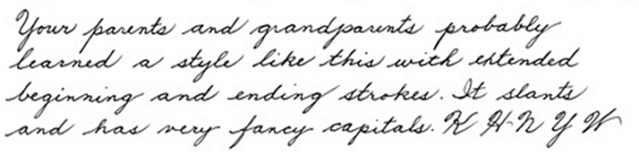 Your parents and grandparents probably
learned a style like this with extended
beginning and ending strokes. It slants
and has very fancy capitals. K H N Y W